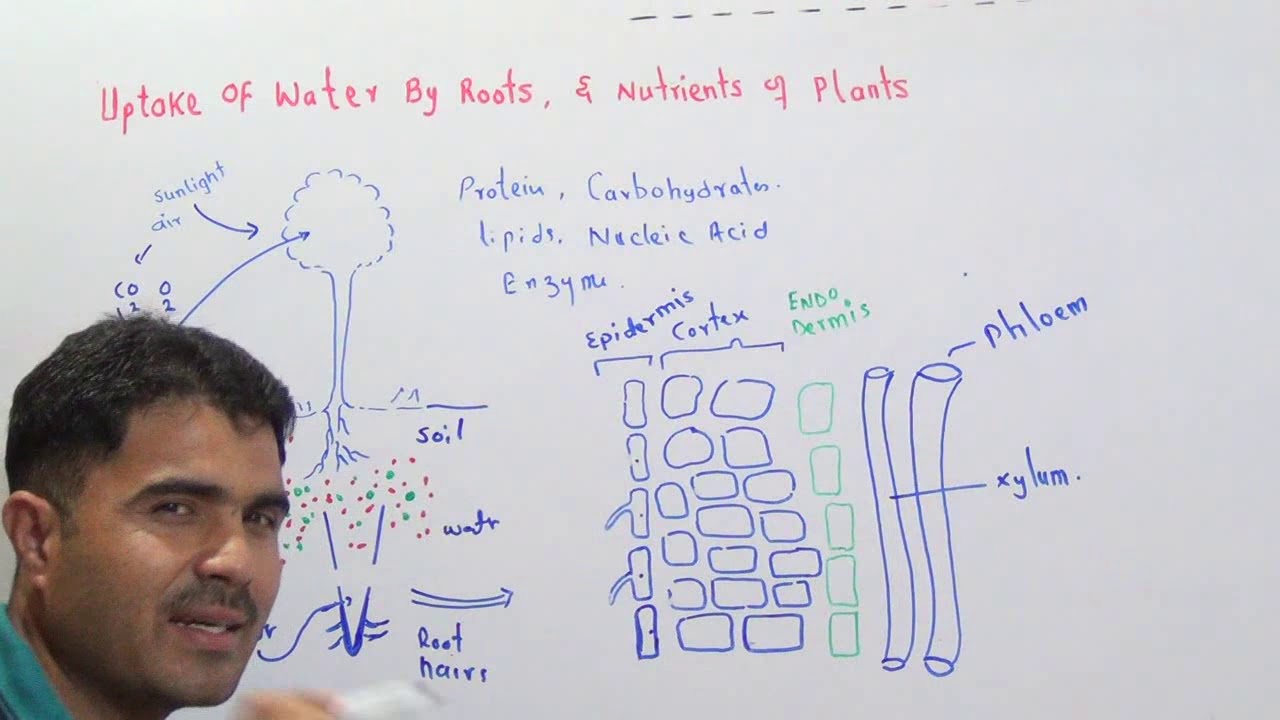 Uptake Of Water By Roots, & Nutrients of Plants
sunlight
air
CO2 O2
Protein, Carbohydrates.
lipids. Nucleic Acid
Enzyme.
Epidermis
Cortex
ENDO
Dermis
Phloem
xylum.
soil
watr
Root
hairs